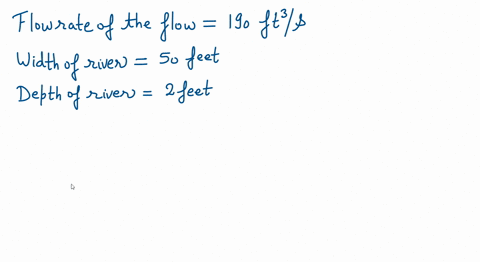 Flowrate of the flow = 190 ft³/s
Width of river = 50 feet
Depth of river = 2 feet